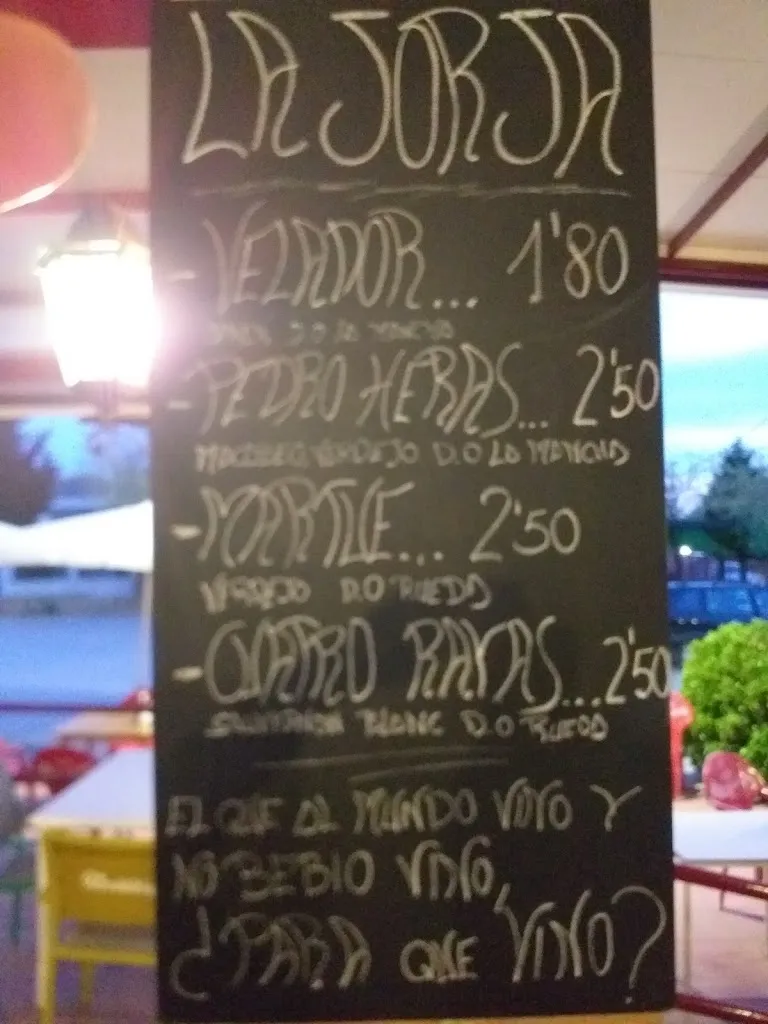 LA JORJA
- VELADOR... 1'80
D.O LA MANCHA
- PEDRO HERAS... 2'50
VERDEJO D.O LA MANCHA
- MARTUE... 2'50
D.O RUEDA
- CUATRO RAYAS... 2'50
BLANC D.O RUEDA
EL QUE AL MUNDO VINO Y
NO BEBIO VINO,
¿PARA QUE VINO?